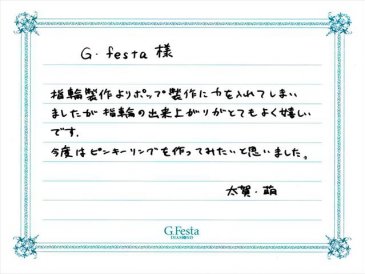 G・festa 様
指輪製作よりポップ製作に力を入れてしまい
ましたが指輪の出来上がりがとてもよく嬉しい
です。
今度はピンキーリングを作ってみたいと思いました。
太賀・萌
G.Festa
DIAMOND